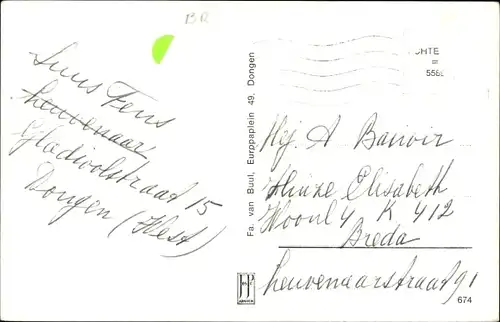 BR
Suus Fens
Leuvenaar
Gladioolstraat 15
Dongen (West)
Fa. van Buul, Europaplein 49, Dongen
CHTE
=
556
Mej. A Bavoir
Huize Elisabeth
K 412
Breda
Leuvenaarstraat 91
JosPe
674